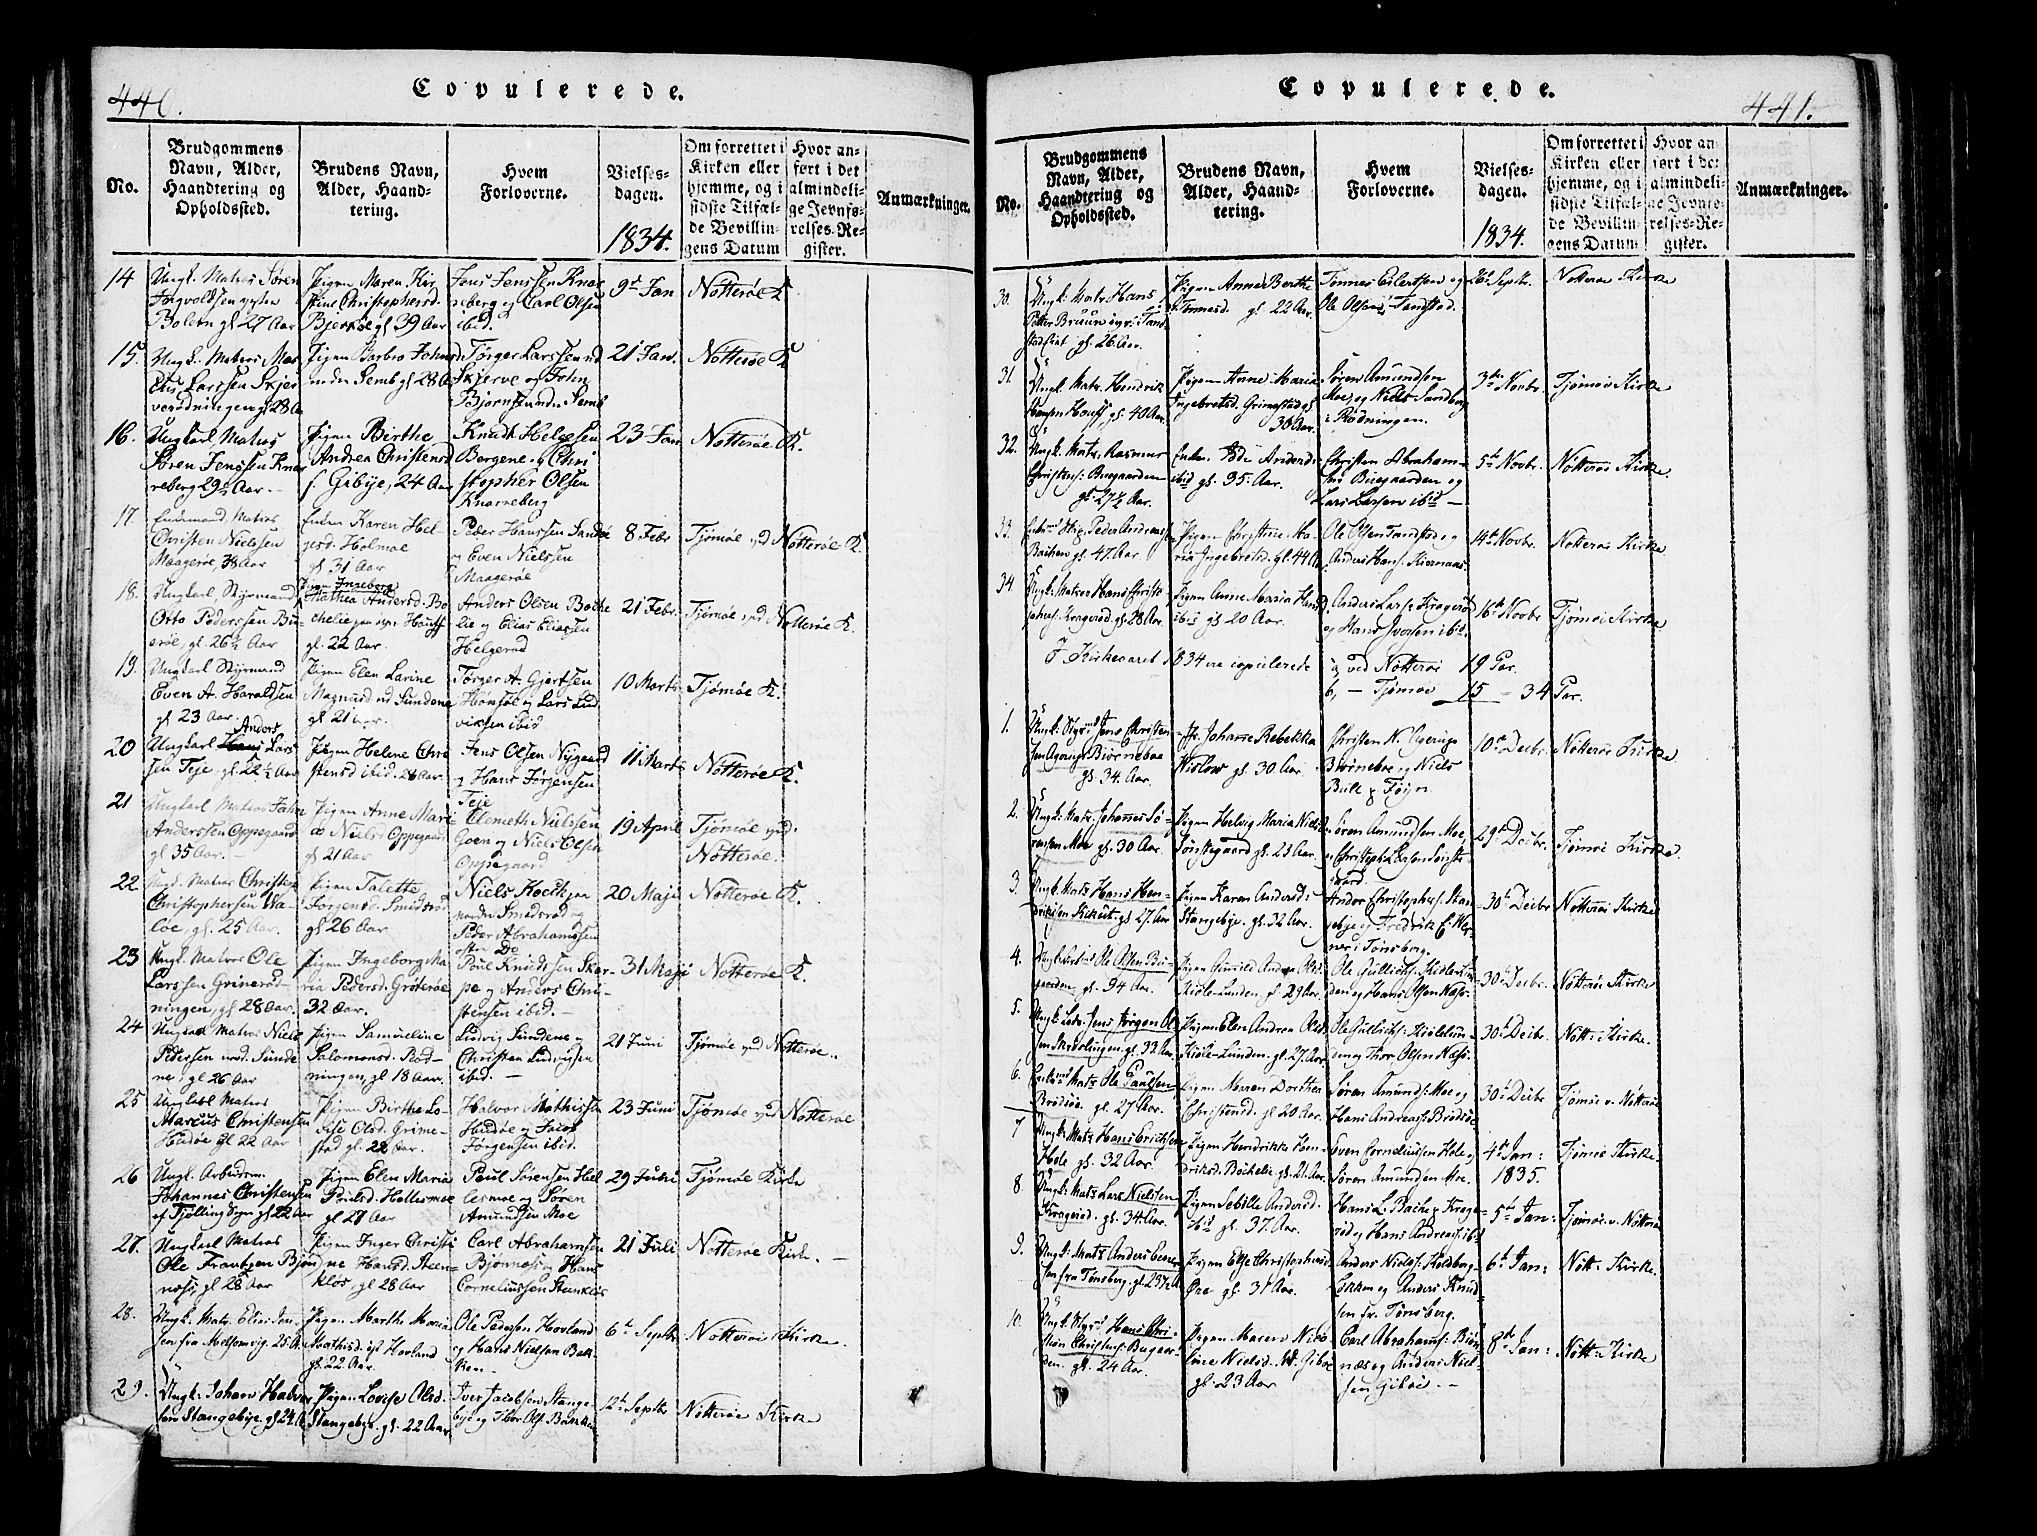 440.
Copulerede.
No.
Brudgommens
Navn, Alder,
Haandtering og
Opholdssted.
Brudens Navn,
Alder, Haand-
tering.
Hvem
Forloverne.
Vielses-
dagen.
1834.
Om forrettet i
Kirken eller
hjemme, og i
sidste Tilfæl-
de Bevillin-
gens Datum
Hvor an-
ført i det
almindeli-
ge Jevnfø-
relses-Re-
gister.
Anmærkninger.
14
Ungk. Matros Søren
Ingvoldsen
Bolern gl 27 Aar
Pigen Maren Kir
stine Christophersd.
Bjerkøe gl 39 Aar
Jens Jenssen Knar
reberg og Carl Olsen
ibid.
9de Jan
Nøtterøe K
15.
Ungk. Matros Mar
Larssen Skjer
verødningen gl 28 A
Pigen Barbro Johnsd
Semb gl 28 A
Tørger Larssen
Skjerve og John
Bjørnssen Semb
21 Jan.
Nøtterøe K
16.
Ungkarl Matros
Søren Jenssen Knar
reberg 29 Aar.
Pigen Birthe
Andrea Christensd
f. Gibøe, 24 Aar
Knudt Helgesen
Bergene og Chri
stopher Olsen
Knarreberg
23 Jan
Nøtterøe K.
17.
Enkemand Matros
Christen Nielssen
Maagerøe, 38 Aar
Enken Karen Hel-
gesd. Holmøe
gl 31 Aar
Peder Hanssen Sandøe
og Even Nielssen
Maagerøe
8 Febr
Tjømøe ved Nøtterøe K.
18.
Ungkarl, Styrmand
Otto Pederssen Bu-
erøe, gl 26½ Aar
Pigen Ingeborg
Mathea Andersd. Bo
chelie Houff
gl. 22 Aar.
Anders Olsen Boche
lie og Elias Eliassen
Helgerød
21 Febr.
Tjømøe ved Nøtterøe K.
19.
Ungkarl Styrmand
Even A. Haraldsen
gl 23 Aar.
Pigen Elen Larine
Magnusd Sundene
gl 21 Aar.
Tørger A. Gjertsen
Hønsøe og Lars Lud
vigsen ibid
10 Marts
Tjømøe K.
20
Ungkarl Hans Anders Lars
sen Teje gl 22½ Aar
Pigen Helene Chri
stensd ibid. 26 Aar.
Jens Olsen Nygaard
og Hans Jørgensen
Teje
11 Marts
Nøtterøe K.
21
Ungkarl Matros John
Anderssen Oppegaard
gl 35 Aar.
Pigen Anne Mari
æ Nielsd Oppegaard
gl 21 Aar
Clemeth Nielssen
Goen og Niels Olsen
Oppegaard
19 April
Tjømøe ved
Nøtterøe.
22
Matros Christen
Christophersen Va-
løe, gl 25 Aar.
Pigen Talette
Jørgensd. Smidsrød
gl 26 Aar
Niels
Smidsrød og
Peder Abrahamssen
Do
20 Maji
Nøtterøe K.
23
Ungk. Matros Ole
Larssen Grinerød-
ningen, gl 28 Aar.
Pigen Ingeborg Ma
ria Pedersd. Grøterøe
32 Aar.
Poul Knudssen Skar-
pe og Anders Chri-
stensen ibid.
31 Maji
Nøtterøe K.
24
Ungkarl Matros Niels
Pederssen Sunde
ne, gl 26 Aar
Pigen Samueline
Salomonsd. Rød-
ningen, gl 18 Aar.
Ludvig Sundene og
Christen Ludvigsen
ibid.
21 Juni
Tjømøe ved Nøtterøe.
25
Ungkarl Matros
Marcus Christensen
Hudøe gl 22 Aar
Pigen Birthe Lo-
vise Olsd. Grime-
stad gl. 22 Aar.
Halvor Mathissen
Hudøe og Jacob
Jørgensen ibid.
23 Juni
Tjømøe ved Nøtterøe
26
Ungk. Arbeidsm.
Johannes Christensen
af Tjølling Sogn gl 22 Aar
Pigen Elen Maria
Poulsd. Hollesmoe
gl 27 Aar
Poul Sørensen Hol
lesmoe og Søren
Amundsen Moe
29 Juni
Tjømøe Kirke
27.
Ungkarl Matros
Ole Frantzen Bjør
næs, gl 28 Aar
Pigen Inger Christi
ne Hansd. Steen-
kløs, gl 28 Aar
Carl Abrahamsen
Bjørnæs og Hans
Corneliussen Stenkløs
21 Juli
Nøtterøe Kirke.
28.
Ungk. Matr. Elias Jen-
sen fra Melsomvig. 25 A.
Pigen Marthe Maria
Mathisd. Hovland
gl. 22 Aar.
Ole Pedersen Hovland
og Hans Nielsen Bek-
ken
6te Septbr
Nøtterøe Kirke
29.
Ungk. Johan Halvor
sen Stangebye, gl 24 A.
Pigen Lovise Olsd.
Stangebye. gl. 22 Aar.
Iver Jacobsen Stange-
bye og Thor Ols. Bækken
12te Septbr
Nøtterøe Kirke
Copulerede.
441.
No.
Brudgommens
Navn, Alder,
Haandtering og
Opholdssted.
Brudens Navn,
Alder, Haand-
tering.
Hvem
Forloverne.
Vielses-
dagen.
1834.
Om forrettet i
Kirken eller
hjemme, og i
sidste Tilfæl-
de Bevillin-
gens Datum
Hvor an-
ført i det
almindeli-
ge Jevnfø-
relses-Re-
gister.
Anmærkninger.
30.
Ungk. Matr. Hans
Petter Bruun
gl. 26 Aar.
Pigen Anne Berthe
Tønnesd. gl. 22 Aar.
Tønnes Eilertsen og
Ole Olsen Tandstad.
26 Septbr.
Nøtterøe Kirke
31
Ungk. Matr. Hendrik
Hansen Houff gl. 40 Aar
Pigen Anne Maria
Ingebretsd. Grimestad gl
30 Aar.
Søren Amundsen
Moe og Niels Sandberg
i Rødningen.
3die Novbr.
Tjømøe Kirke
32.
Ungk. Matr. Rasmus
Christens: Buegaarden
gl. 27½ Aar.
Enken Andersd:
ibid gl. 35 Aar.
Christen Abraham-
sen Buegaarden og
Lars Larsen ibid
5te Novbr.
Nøtterøe Kirke.
33.
Peder Andreas
Bachen gl. 47 Aar
Pigen Christine Ma
ria Ingebretsd. gl. 44 Aar
Ole Olsen Tandstad og
Anders Hans: Kiernaas
14de Novbr.
Nøtterøe Kirke
34.
Ungk. Matros Hans Christo
phers: Kragerød gl. 28 Aar
Pigen Anne Maria Hansd.
ibid gl. 20 Aar.
Anders Lars: Kragerød
og Hans Iversen ibid.
16de Novbr
Tjømøe Kirke
I Kirkeaaret 1834 ere copulerede
a, ved Nøtterøe 19 Par.
b, — Tjømøe 15 – 34 Par.
1.
Ungk: Styrmd Jens Christen
sen Agerup Biørneboe
gl. 34. Aar.
Jfr. Johanne Rebekka
Wislow gl. 30 Aar.
Christen N. Agerup
Biørnebye og Niels
Bull p Føyn.
10de Decbr.
Nøtterøe Kirke
2.
Ungk: Matr. Johannes Sø-
rensen Moe gl. 30 Aar.
Pigen Helvig Maria Niels
gaard gl. 23 Aar.
Søren Amundsen Moe
og Christoph. Larsen
29de Decbr.
Tjømøe Kirke.
3.
Ungk. Matr. Hans Hen-
driksen Kikut. gl 27 Aar
Pigen Karen Andersd:
Stangebye. gl. 32 Aar.
Andor Christophers: Stan
gebye og Fredrik E: Wer
ner i Tønsberg.
30te Decbr
Nøtterøe Kirke
4.
Ole Olsen Bue-
gaarden gl. 34 Aar.
Pigen Gunild Andrea Olsd:
Kiøle-Lunden. gl. 29 Aar.
Ole Gullichs: Kiølelun
den og Hans Olsen Næss.
30te Decbr.
Nøtterøe Kirke
5.
Jens Jørgen Ol
sen Meddolingen. gl. 33 Aar
Pigen Elen Andrea Olsd.
Kiøle-Lunden. gl. 27 Aar
Ole Gullichs: Kiølelun-
den og Thor Olsen Næss:
30te Decbr.
Nøtt: Kirke.
6.
Matr Ole Paulsen
Brødsøe. gl. 27. Aar.
Pigen Maren Dorthea
Christensd. gl 20 Aar.
Søren Amunds: Moe og
Hans Andreass: Brødsøe
30te Decbr
Tjømøe v. Nøtterøe
7
Ungk: Matr Hans Erichsen
Hole gl. 32 Aar.
Pigen Hendrikke Hen
driksd. Bøchelie gl. 21 Aar
Even Corneliussen Hole og
Søren Amundsen Moe.
4de Jan:
1835.
Tjømøe Kirke
8.
Ungk: Matr Lars Nielssen
Kragerød. gl. 34 Aar.
Pigen Sebille Andersd.
ibid gl. 37. Aar.
Hans L. Bache p Krage-
rød og Hans Andreass: ibd
5te Jan:
Tjømøe v. Nøtterøe
9.
Ungk: Matr Anders
sen fra Tønsberg. gl. 23½ A
Pigen Else Christophersd
Øre gl. 31 Aar.
Anders Niels: Holdberg-
Løkken og Anders Knud
sen fr. Tønsberg.
6te Jan:
Nøtt: Kirke.
10.
Ungk. Styrmd Hans Chri-
stian Christens: Bugaar-
den. gl. 24 Aar.
Pigen Maren Nico-
line Nielsd. W. Gibøe
gl. 23 Aar
Carl Abrahams: Biør
næs og Anders Niel-
sen Gibøe. —
8de Jan:
Nøtt: Kirke